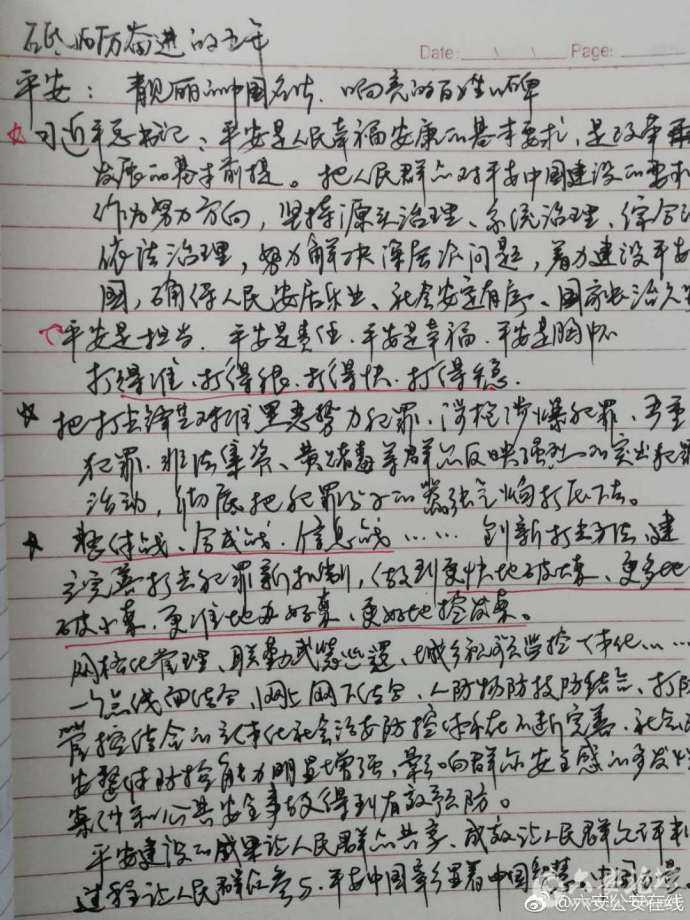 砥砺奋进的五年
Date: Page:
平安：靓丽的中国名片，响亮的百姓口碑
习近平总书记：平安是人民幸福安康的基本要求，是改革
发展的基本前提。把人民群众对平安中国建设的要求
作为努力方向，坚持源头治理、系统治理、综合
依法治理，努力解决深层次问题，着力建设平安
国，确保人民安居乐业、社会安定有序、国家长治久
平安是担当，平安是责任，平安是幸福，平安是胸怀
打得准、打得狠、打得快、打得稳。
把打击锋芒对准黑恶势力犯罪、涉枪涉爆犯罪、
犯罪、非法集资、黄赌毒等群众反映强烈的突出犯罪
活动，彻底把犯罪分子的嚣张气焰打压下去。
整体战、合成战、信息战……创新打击方法，建
立完善打击犯罪新机制，做到更快地破大案、更多地
破小案、更准地办好案、更好地控发案。
网格化管理、联勤武装巡逻、城乡视频监控一体化……
一个点线面结合、网上网下结合、人防物防技防结合、打防
管控结合的立体化社会治安防控体系在不断完善，社会
安整体防控能力明显增强，影响群众安全感的多发
案件和公共安全事故得到有效预防。
平安建设的成果让人民群众共享、成效让人民群众评判
过程让人民群众参与，平安中国彰显着中国智慧、中国
@六安公安在线